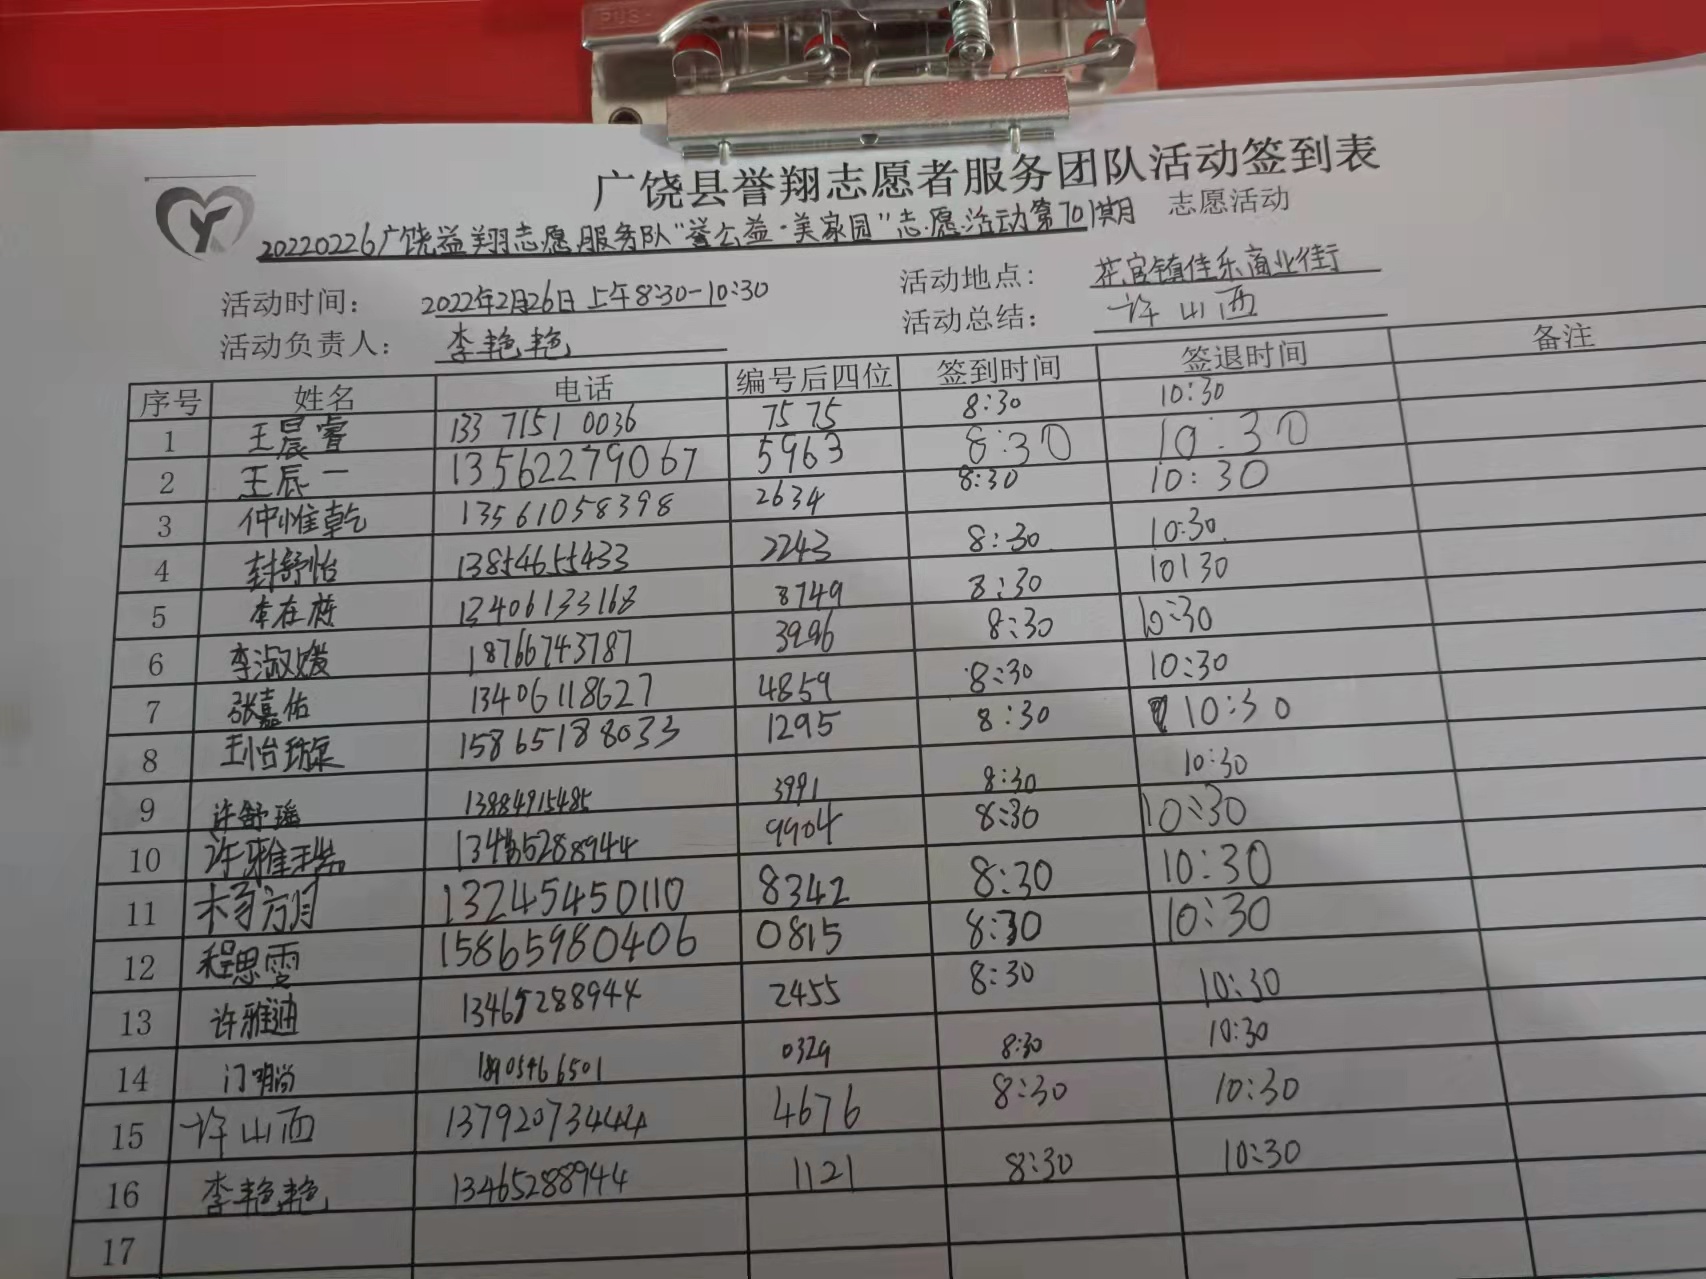 PUSH
广饶县誉翔志愿者服务团队活动签到表
20220226广饶益翔志愿服务队“誉公益·美家园”志愿活动第701期 志愿活动
活动时间: 2022年2月26日上午8:30-10:30 活动地点: 花官镇佳乐商业街
活动负责人: 李艳艳 活动总结: 许山西
序号 姓名 电话 编号后四位 签到时间 签退时间 备注
1 王晨睿 133 7151 0036 7575 8:30 10:30
2 王辰一 13562279067 5963 8:30 10:30
3 仲惟乾 13561058398 2634 8:30 10:30
4 封舒怡 13854655433 2243 8:30 10:30
5 李在 13406133168 8749 8:30 10:30
6 李淑媛 18766743787 3996 8:30 10:30
7 张嘉佑 13406118627 4859 8:30 10:30
8 王怡璇 15865188033 1295 8:30 10:30
9 许舒瑶 13884915485 3991 8:30 10:30
10 许雅 13465288944 9904 8:30 10:30
11 杨方月 13245450110 8342 8:30 10:30
12 程思雯 15865980406 0815 8:30 10:30
13 许雅迪 13465288944 2455 8:30 10:30
14 门明尚 18905466501 0329 8:30 10:30
15 许山西 13792073444 4676 8:30 10:30
16 李艳艳 13465288944 1121 8:30 10:30
17